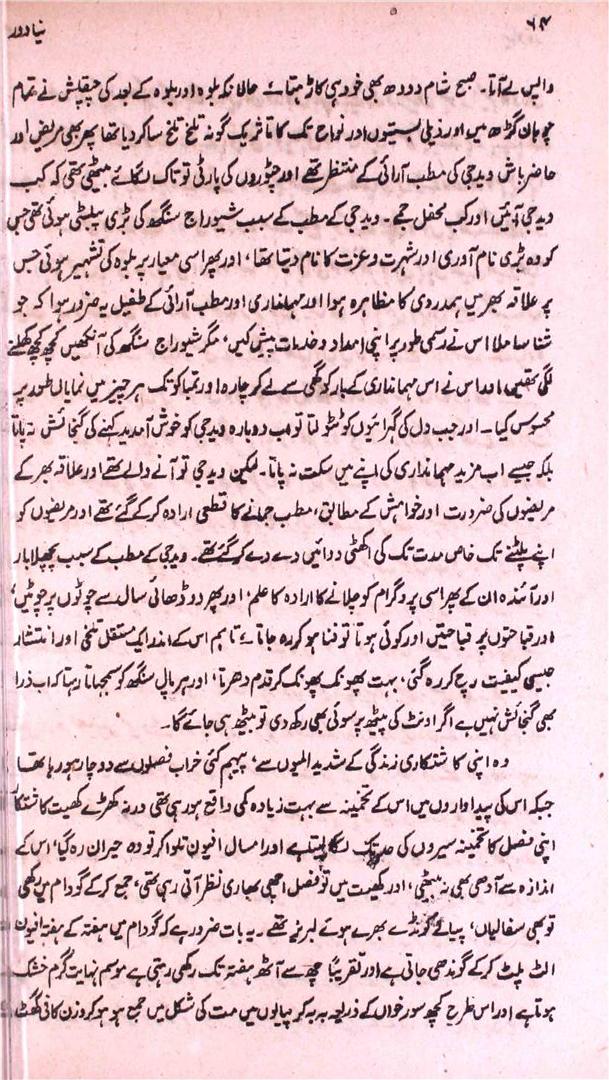 ۶۴
نیا دور
واپس لے آتا۔ صبح شام دودھ بھی خود ہی کاڑھتا ئے حالانکہ بلوہ اور بلوہ کے بعد کی چپقلش نے تمام
چوہان گڑھ میں اور ذیلی بستیوں اور نواح تک کا تاثر یک گونہ تلخ تلخ سا کر دیا تھا پھر بھی مریض اور
حاضر باش ویدجی کی مطب آرائی کے منتظر تھے اور چٹوروں کی پارٹی تو تاک لگائے بیٹھی تھی کہ کب
ویدجی آئیں اور کب محفل جمے۔ ویدجی کے مطب کے سبب شیوراج سنگھ کی بڑی پبلسٹی ہوئی تھی جس
کو وہ بڑی نام آوری اور شہرت و عزت کا نام دیتا تھا، اور پھر اسی معیار پر بلوہ کی تشہیر ہوئی جس
پر علاقہ بھر میں ہمدردی کا مظاہرہ ہوا اور مہمانداری اور مطب آرائی کے طفیل یہ ضرور ہوا کہ جو
شناسا ملا اس نے رسمی طور پر اپنی امداد و خدمات پیش کیں، مگر شیوراج سنگھ کی آنکھیں کچھ کچھ کھلنے
لگی تھیں اور اس نے اس مہمانداری کے بار کو گھی سے لے کر چارہ اور تمباکو تک ہر چیز میں نمایاں طور پر
محسوس کیا۔ اور جب دل کی گہرائیوں کو ٹٹولتا تو اب دوبارہ ویدجی کو خوش آمدید کہنے کی گنجائش نہ پاتا
بلکہ جیسے اب مزید مہمانداری کی اپنے میں سکت نہ پاتا۔ لیکن ویدجی تو آنے والے تھے اور علاقہ بھر کے
مریضوں کی ضرورت اور خواہش کے مطابق، مطب جمانے کا قطعی ارادہ کر کے گئے تھے اور مریضوں کو
اپنے پلٹنے تک خاص مدت تک کی اکھٹی دوائیں دے دے کر گئے تھے۔ ویدجی کے مطب کے سبب پچھلا بار
اور آئندہ ان کے پھر اسی پروگرام کو چلانے کا ارادہ کا علم، اور پھر دو ڈھائی سال سے چوٹوں پر چوٹیں،
اور قباحتوں پر قباحتیں اور کوئی ہوتا تو فنا ہو کر رہ جاتا ئے تاہم اس کے اندر ایک مستقل تلخی اور انتشار
جیسی کیفیت رچ کر رہ گئی، بہت پھونک پھونک کر قدم دھرتا، اور ہرپال سنگھ کو سمجھاتا رہتا کہ اب ذرا
بھی گنجائش نہیں ہے اگر اونٹ کی پیٹھ پر سوئی بھی رکھ دی تو بیٹھ ہی جائے گا۔
وہ اپنی کاشتکاری زندگی کے شدید المیوں سے، پیہم کئی خراب فصلوں سے دوچار ہو رہا تھا
جبکہ اس کی پیداواروں میں اس کے تخمینہ سے بہت زیادہ کمی واقع ہو رہی تھی ورنہ کھڑے کھیت کا شتکار
اپنی فصل کا تخمینہ سیروں کی حد تک لگا لیتا ہے اور امسال افیون تلوا کر تو وہ حیران رہ گیا، اس کے
اندازہ سے آدھی بھی نہ بیٹھی، اور کھیت میں تو فصل اچھی بھاری نظر آتی رہی تھی، جمع کر کے گودام میں رکھی
تو بھی سفالیاں، پیالے کونڈے بھرے ہوئے لبریز تھے۔ یہ بات ضرور ہے کہ گودام میں ہفتہ کے ہفتہ افیون
الٹ پلٹ کر کے گوندھی جاتی ہے اور تقریباً چھ سے آٹھ ہفتہ تک رکھی رہتی ہے موسم نہایت گرم خشک
ہوتا ہے اور اس طرح کچھ سوراخوں کے ذریعہ بہہ بہہ کر پیالوں میں مت کی شکل میں جمع ہو ہو کر وزن کافی گھٹ